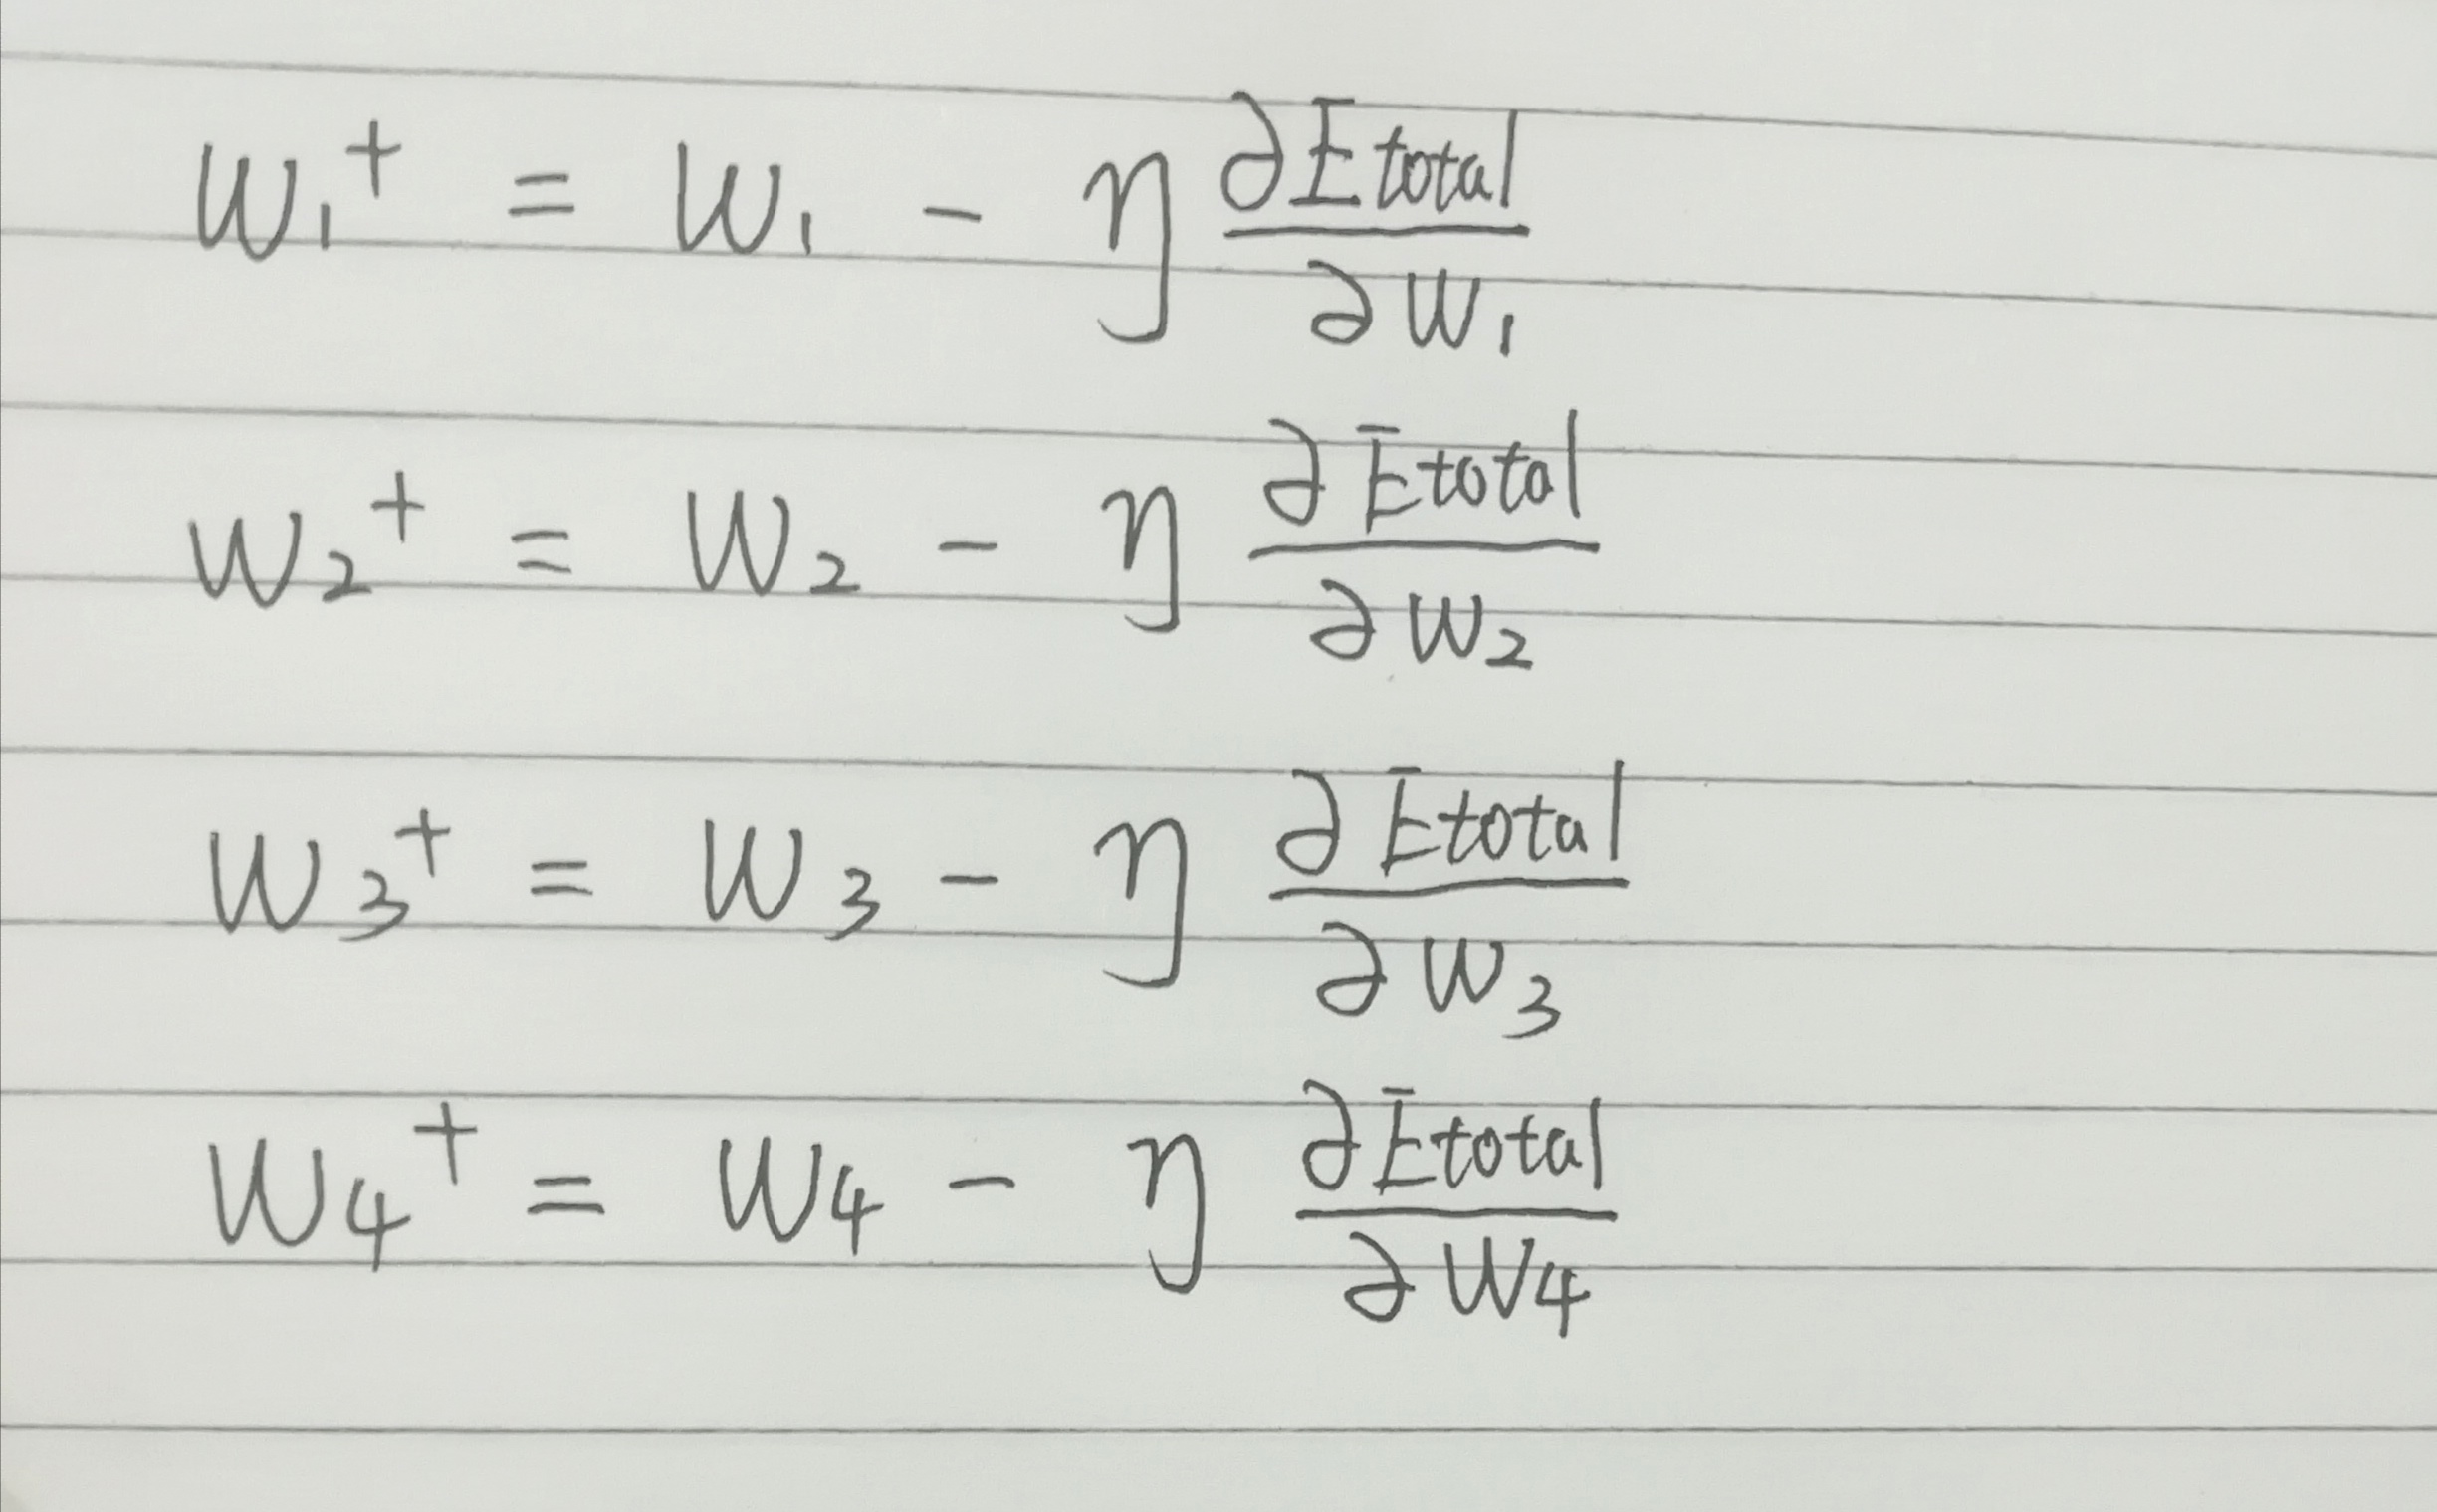 W₁⁺ = W₁ - η ∂Etotal/∂W₁
W₂⁺ = W₂ - η ∂Etotal/∂W₂
W₃⁺ = W₃ - η ∂Etotal/∂W₃
W₄⁺ = W₄ - η ∂Etotal/∂W₄